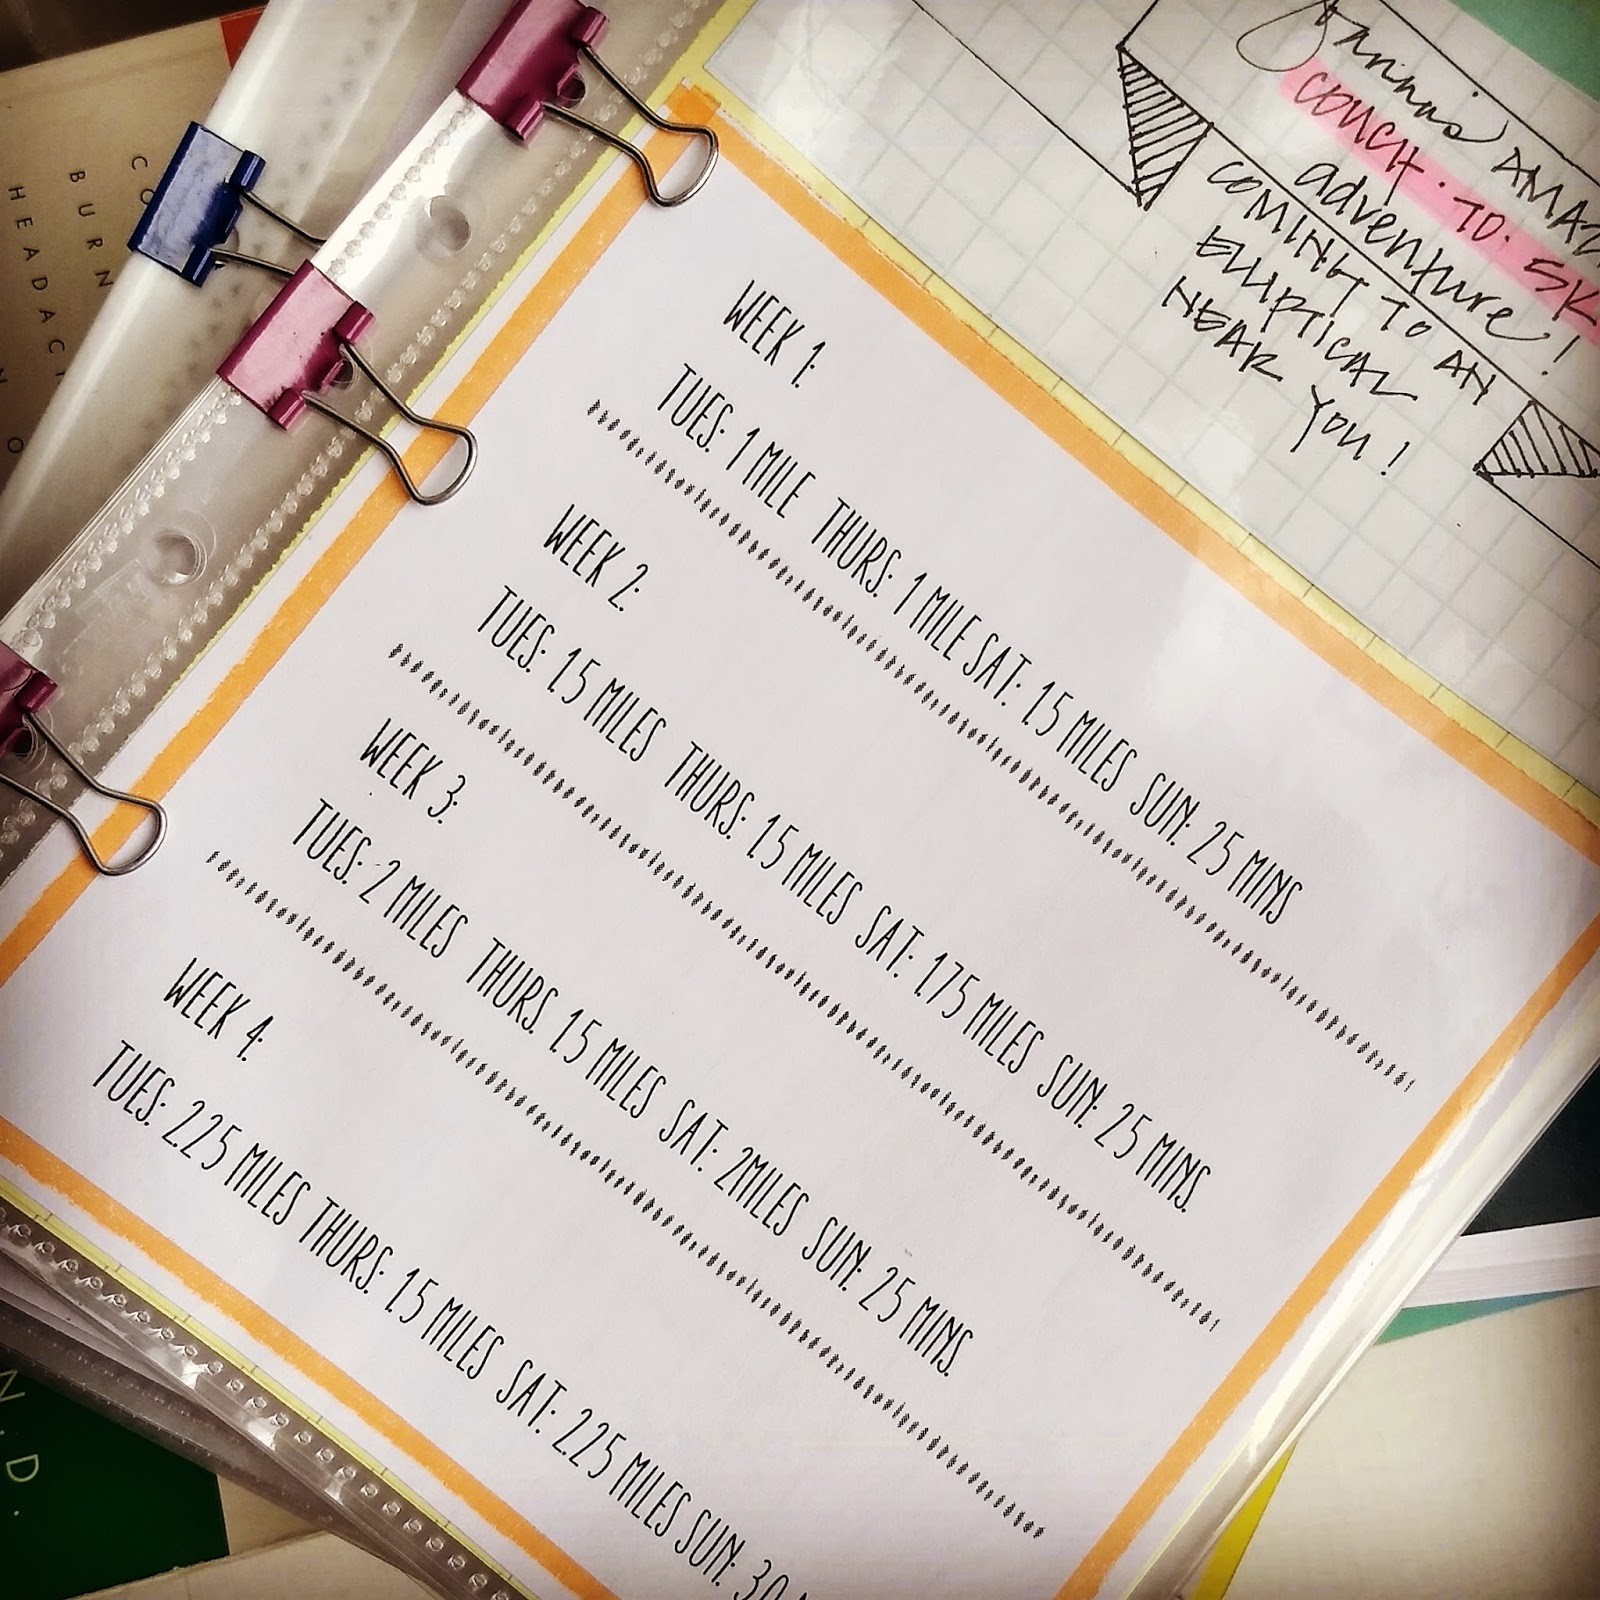 AMAZ
COUCH·TO·5K
adventure!
COMING TO AN
ELLIPTICAL
NEAR
YOU!
WEEK 1:
TUES: 1 MILE THURS: 1 MILE SAT: 1.5 MILES SUN: 25 MINS
WEEK 2:
TUES: 1.5 MILES THURS: 1.5 MILES SAT: 1.75 MILES SUN: 25 MINS.
WEEK 3:
TUES: 2 MILES THURS. 1.5 MILES SAT: 2MILES SUN: 25 MINS.
WEEK 4:
TUES: 2.25 MILES THURS: 1.5 MILES SAT: 2.25 MILES SUN: 30
CO
BURN
HEADAC
N.D.